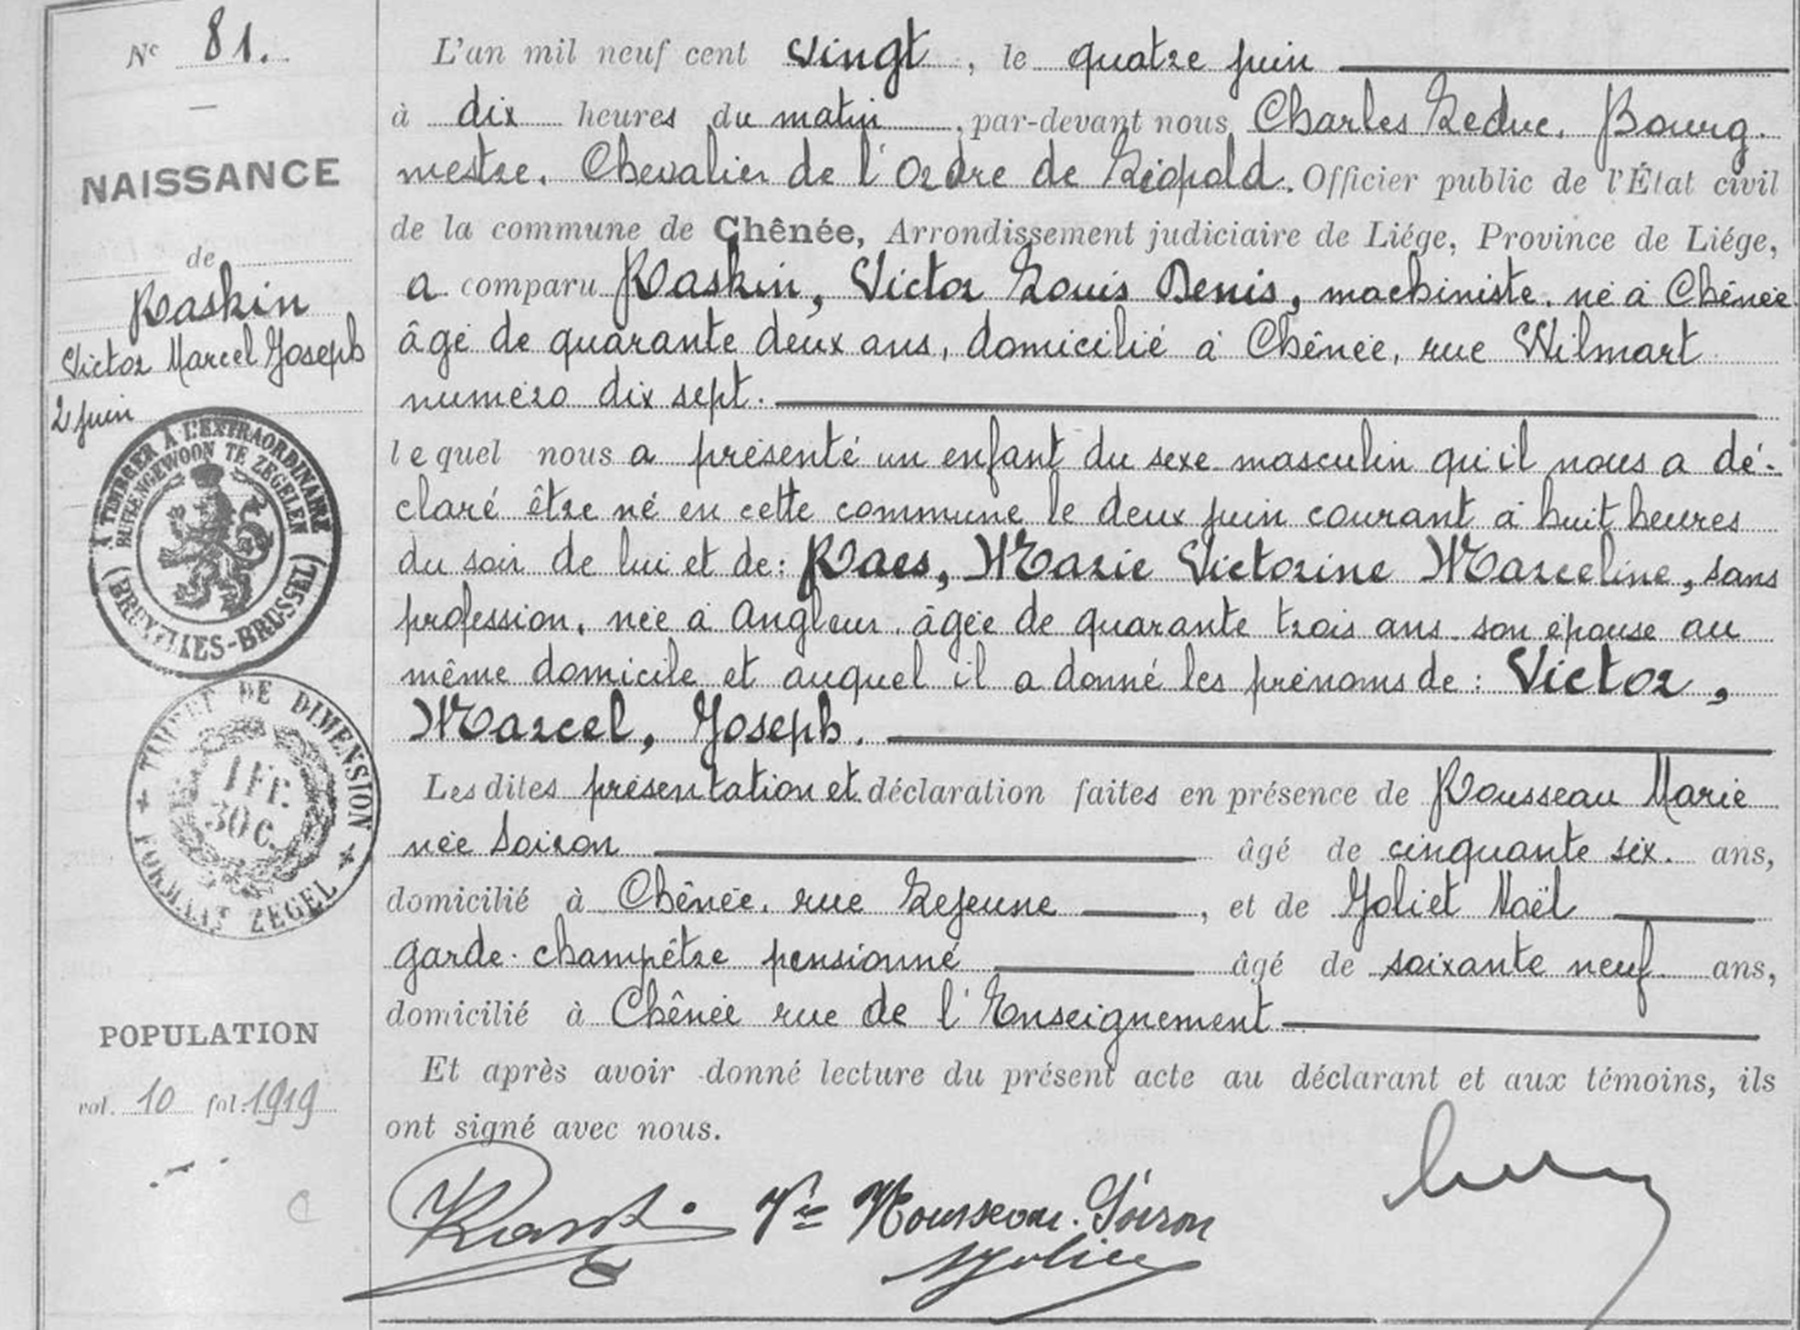 Nº 81.
NAISSANCE
de
Raskin
Victor Marcel Joseph
2 juin
À TIMBRER À L'EXTRAORDINAIRE
BUITENGEWOON TE ZEGELEN
(BRUXELLES-BRUSSEL)
TIMBRE DE DIMENSION
1 Fr.
30 C.
FORMAAT ZEGEL
POPULATION
vol. 10 fol. 1919
L'an mil neuf cent vingt, le quatre juin
à dix heures du matin, par-devant nous Charles Leduc, Bourg-
mestre, Chevalier de l'Ordre de Léopold. Officier public de l'État civil
de la commune de Chênée, Arrondissement judiciaire de Liége, Province de Liége,
a comparu Raskin, Victor Louis Denis, machiniste, né à Chênée
âgé de quarante deux ans, domicilié à Chênée, rue Wilmart
numéro dix sept.
lequel nous a présenté un enfant du sexe masculin qu'il nous a dé-
claré être né en cette commune le deux juin courant à huit heures
du soir de lui et de: Raes, Marie Victorine Marceline, sans
profession, née à Angleur, âgée de quarante trois ans, son épouse au
même domicile et auquel il a donné les prénoms de: Victor,
Marcel, Joseph.
Les dites présentation et déclaration faites en présence de Rousseau Marie
née Soiron âgé de cinquante six ans,
domicilié à Chênée, rue Lejeune, et de Joliet Noël
garde-champêtre pensionné âgé de soixante neuf ans,
domicilié à Chênée rue de l'Enseignement
Et après avoir donné lecture du présent acte au déclarant et aux témoins, ils
ont signé avec nous.
Vve Rousseau-Soiron